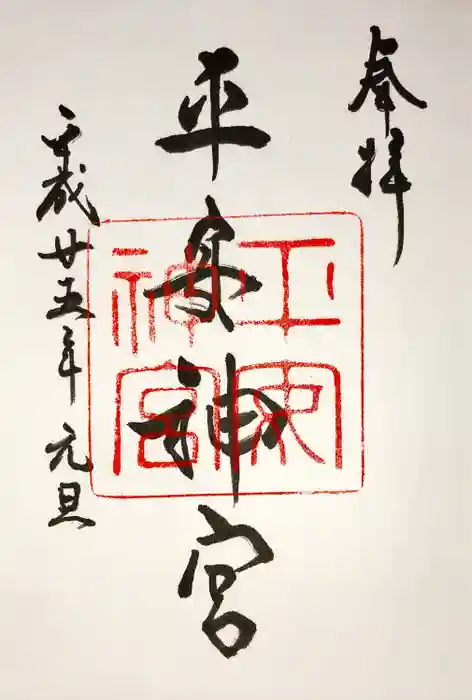 奉拝
平安神宮
平安神宮
平成廿五年元旦